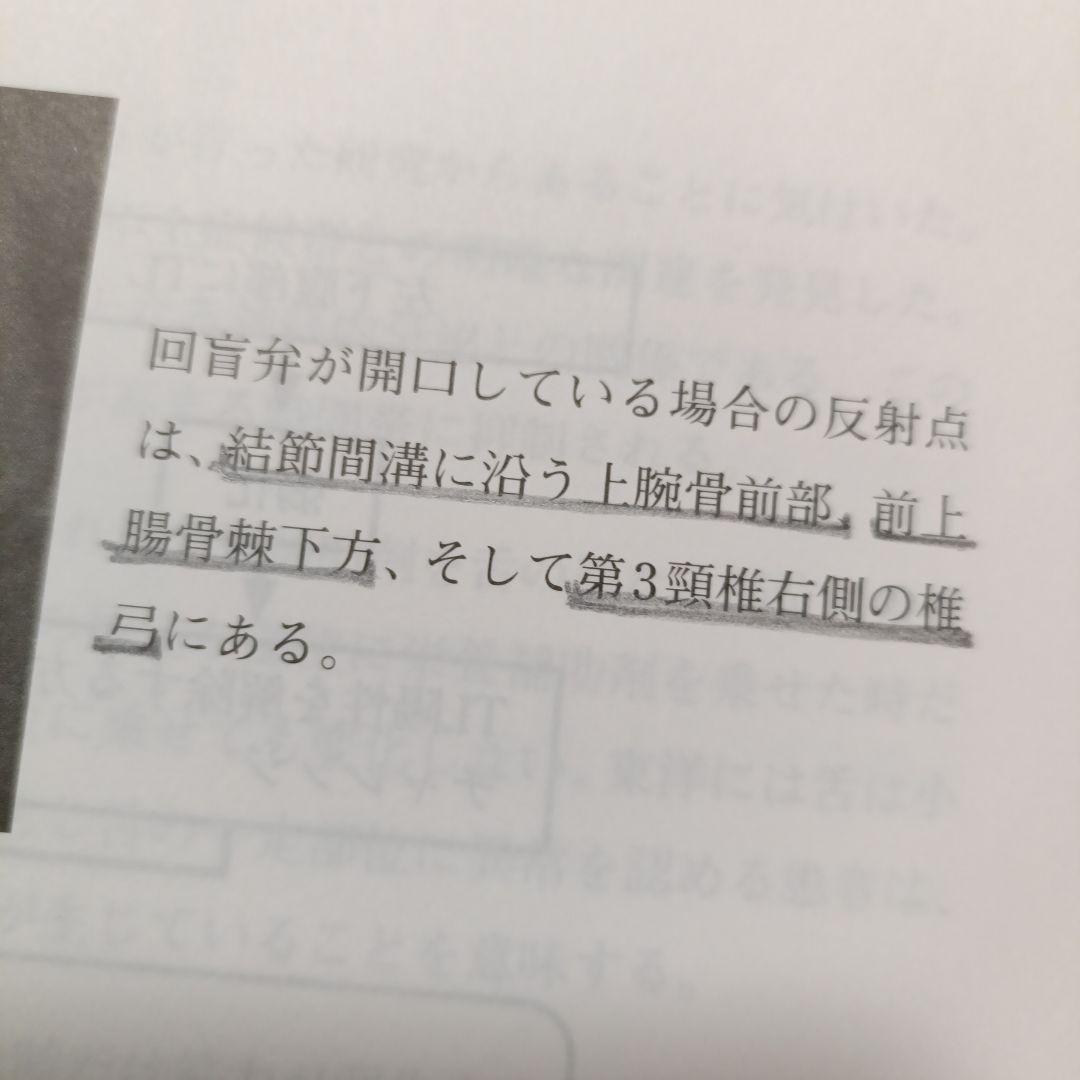 回盲弁が開口している場合の反射点
は、結節間溝に沿う上腕骨前部、前上
腸骨棘下方、そして第3頸椎右側の椎
弓にある。